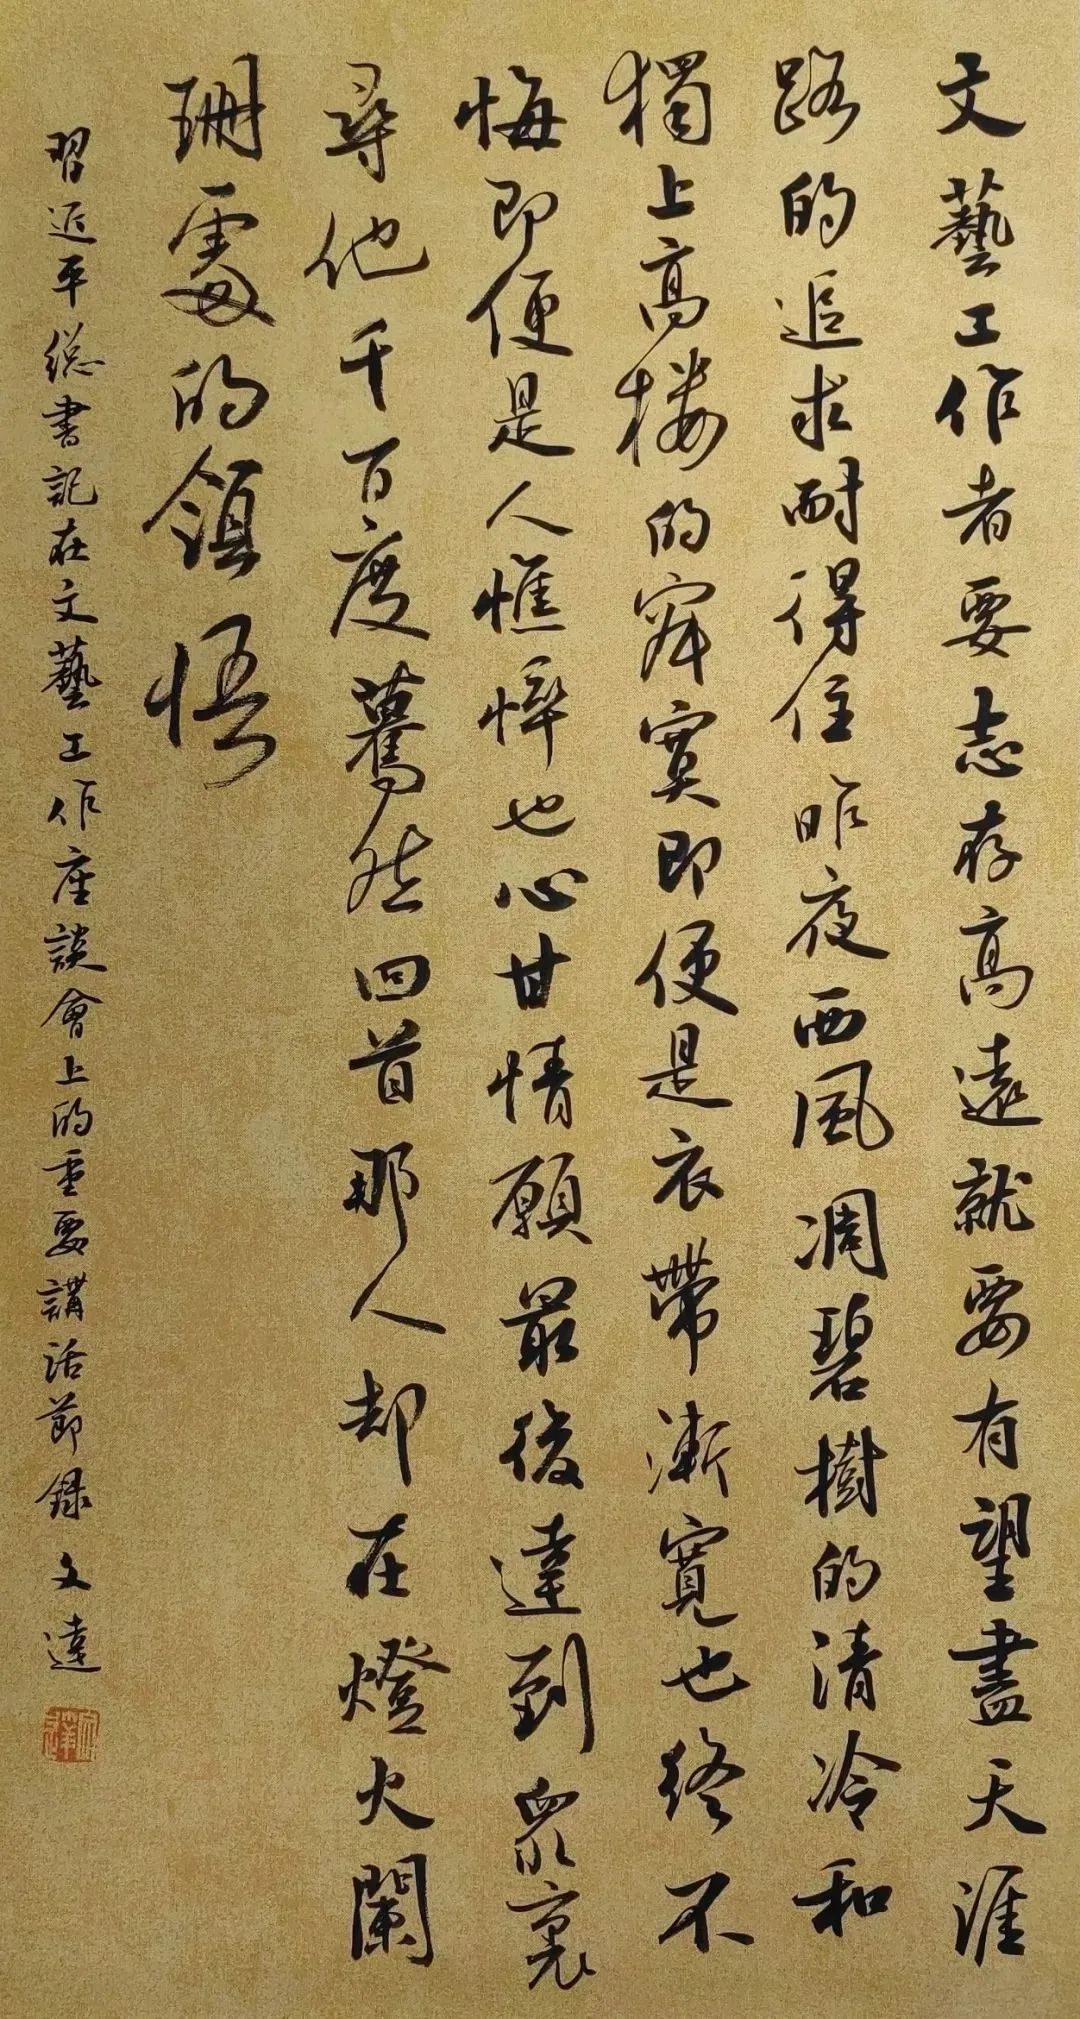 文藝工作者要志存高遠就要有望盡天涯
路的追求耐得住昨夜西風凋碧樹的清冷和
獨上高楼的寂寞即便是衣帶漸寬也終不
悔即便是人憔悴也心甘情願最後達到眾裏
尋他千百度驀然回首那人却在燈火闌
珊處的領悟
習近平總書記在文藝工作座談會上的重要講話節録 文達